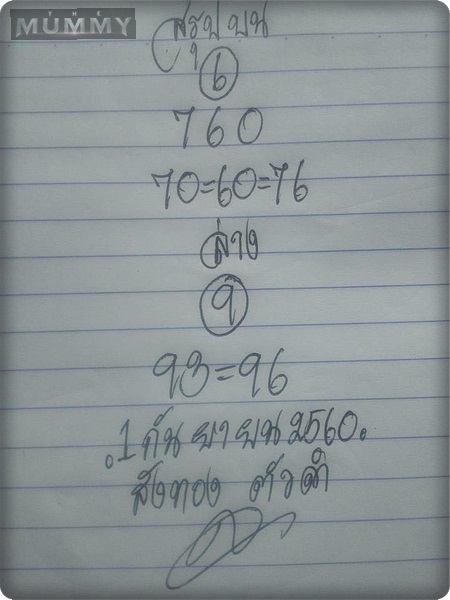 MUMMY
สรุป บน
6
760
70=60=76
ล่าง
9
93=96
.1 กันยายน 2560.
สังทอง ตัวดำ